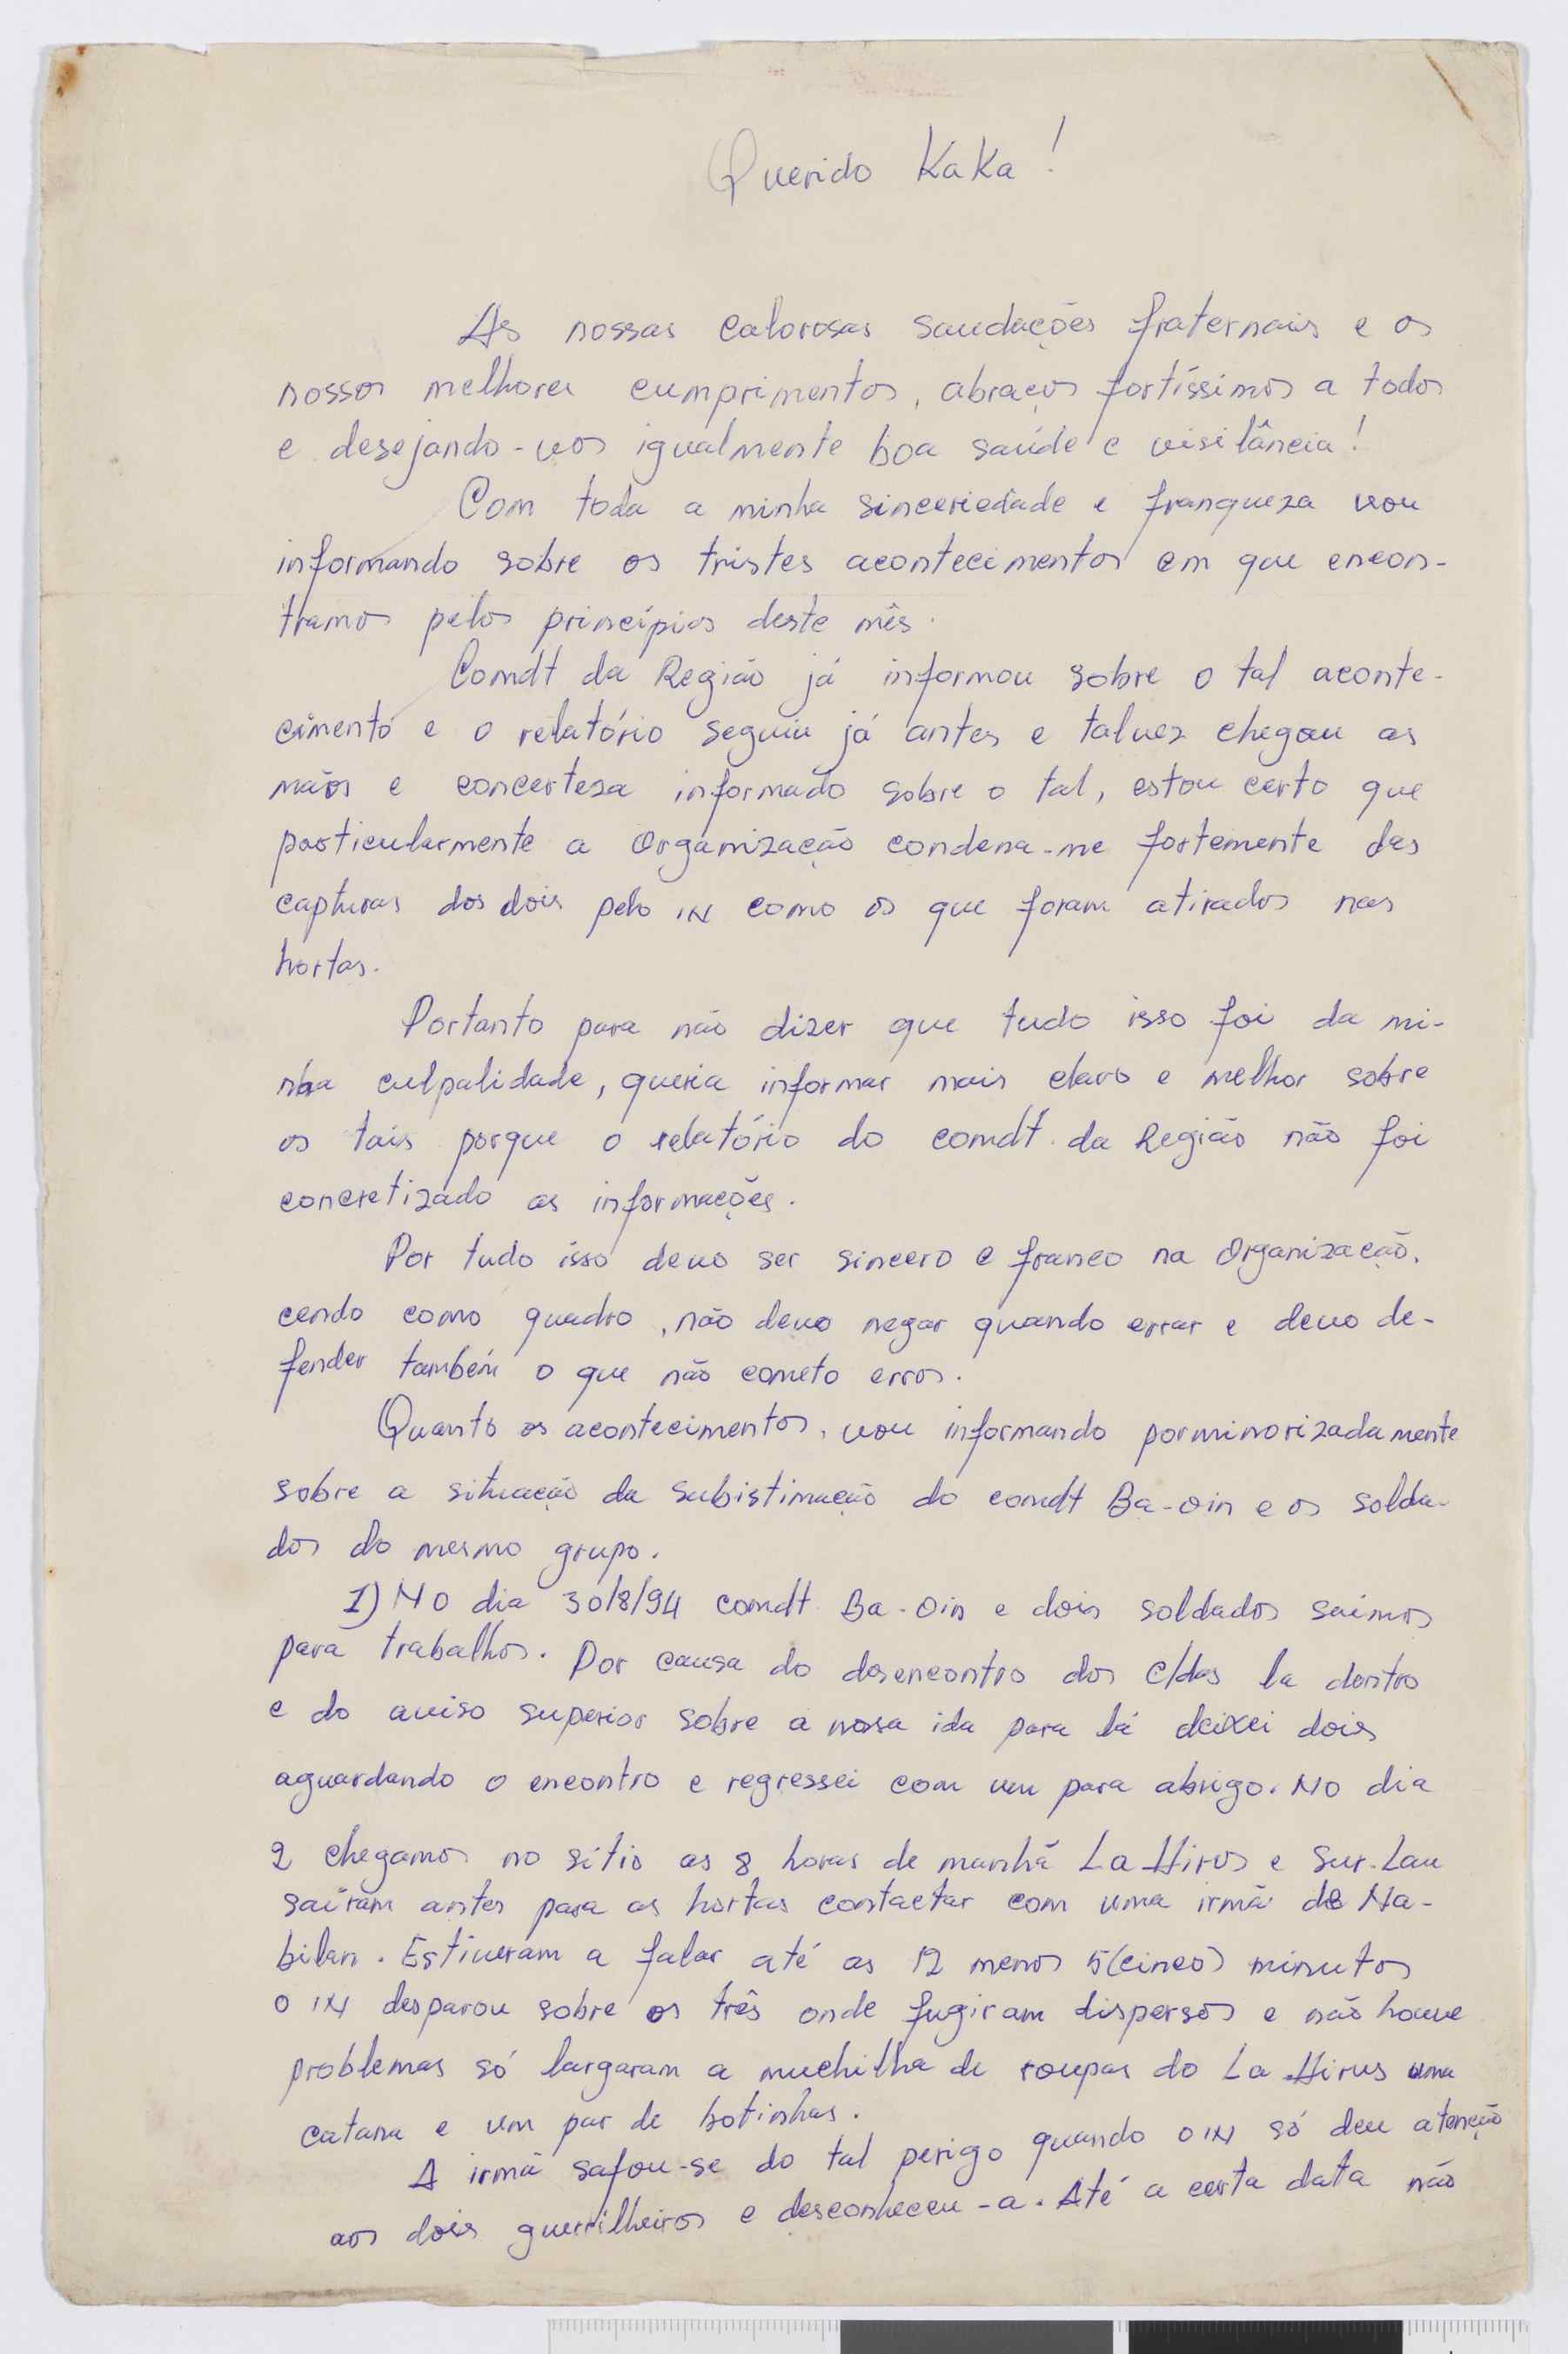 Querido KaKa!
As nossas calorosas saudações fraternais e os
nossos melhores cumprimentos, abraços fortíssimos a todos
e desejando-vos igualmente boa saúde e visilância!
Com toda a minha sinceriedade e franqueza vou
informando sobre os tristes acontecimentos em que encon-
tramos pelos princípios deste mês.
Comdt da Região já informou sobre o tal aconte-
cimento e o relatório seguiu já antes e talvez chegou as
mãos e concerteza informado sobre o tal, estou certo que
particularmente a Organização condena-me fortemente das
capturas dos dois pelo IN como os que foram atirados nas
hortas.
Portanto para não dizer que tudo isso foi da mi-
nha culpalidade, queria informar mais claro e melhor sobre
os tais porque o relatório do comdt. da Região não foi
concretizado as informações.
Por tudo isso devo ser sincero e franco na Organização,
cendo como quadro, não devo negar quando errar e devo de-
fender também o que não cometo erros.
Quanto os acontecimentos, vou informando porminorizadamente
sobre a situação da subistimação do comdt Ba-Oin e os solda-
dos do mesmo grupo.
1) No dia 30/8/94 comdt Ba-Oin e dois soldados saímos
para trabalhos. Por causa do desencontro dos c/das la dentro
e do aviso superior sobre a nossa ida para lá deixei dois
aguardando o encontro e regressei com um para abrigo. No dia
2 chegamos no sítio as 8 horas de manhã La Hirus e Sur-Lau
saíram antes para as hortas contactar com uma irmã de Na-
bilan. Estiveram a falar até as 12 menos 5 (cinco) minutos
o IN desparou sobre os três onde fugiram dispersos e não houve
problemas só largaram a muchilha de roupas do La Hirus uma
catana e um par de botinhas.
A irmã safou-se do tal perigo quando o IN só deu atenção
aos dois guerrilheiros e desconheceu-a. Até a certa data não